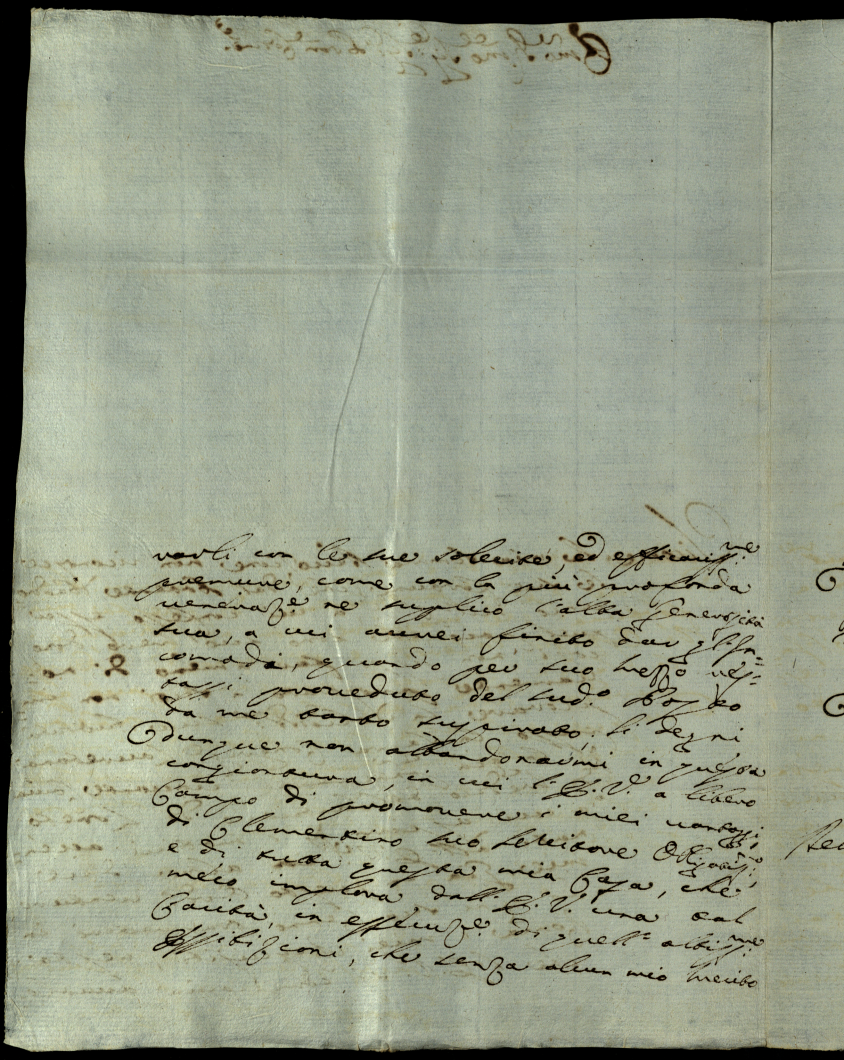 varli con le sue solecite, ed efficacissme
premure, come con la più profonda
veneraze ne suplico l'alta Generosità
sua, a cui averei finito dar gl'In=
comodi, quando per suo mezzo res=
tassi proveduto del sudo Posto
da me tanto suspirato; si degni
dunque non abbandonarmi in questa
congiontura, in cui l'E. V. a libero
Campo di promovere i miei vantaggi,
di Clementino suo servitore Obligatissmo,
e di tutta questa mia Casa, che
meco implora dall' E. V. una tal
Carità, in essecuze di quell' altissme
Essibizioni, che senza alcun mio merito